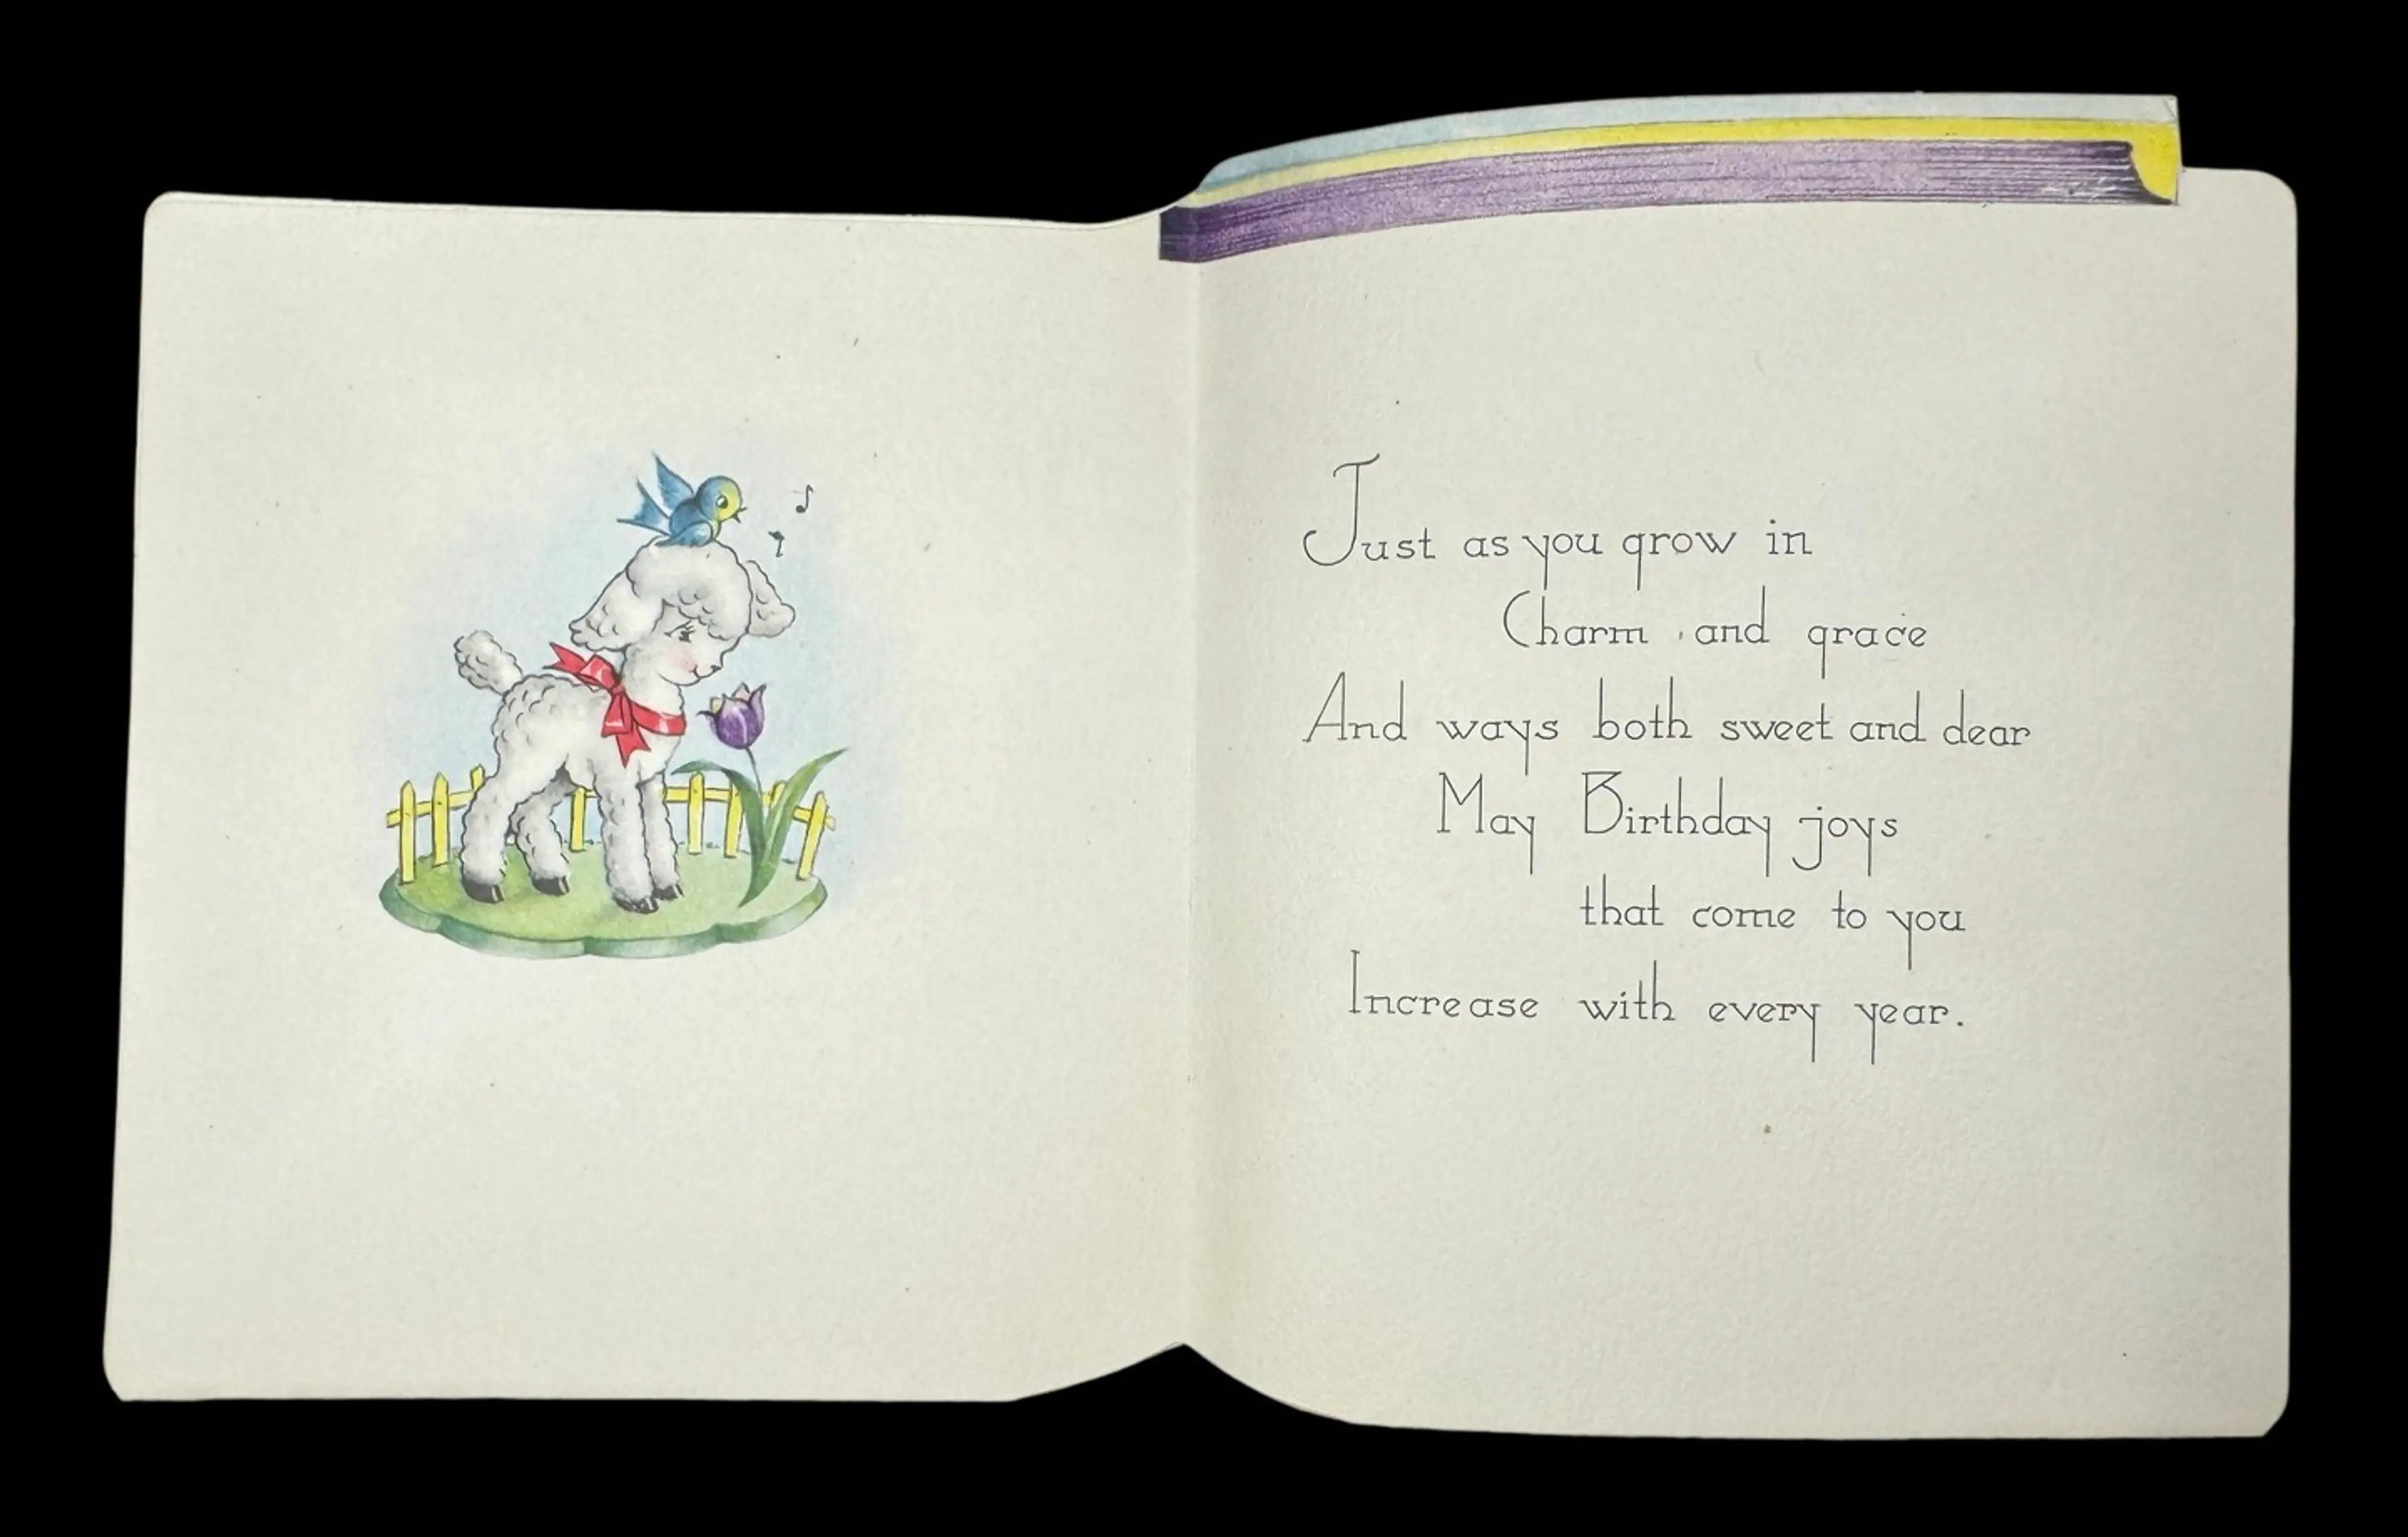 Just as you grow in
Charm and grace
And ways both sweet and dear
May Birthday joys
that come to you
Increase with every year.